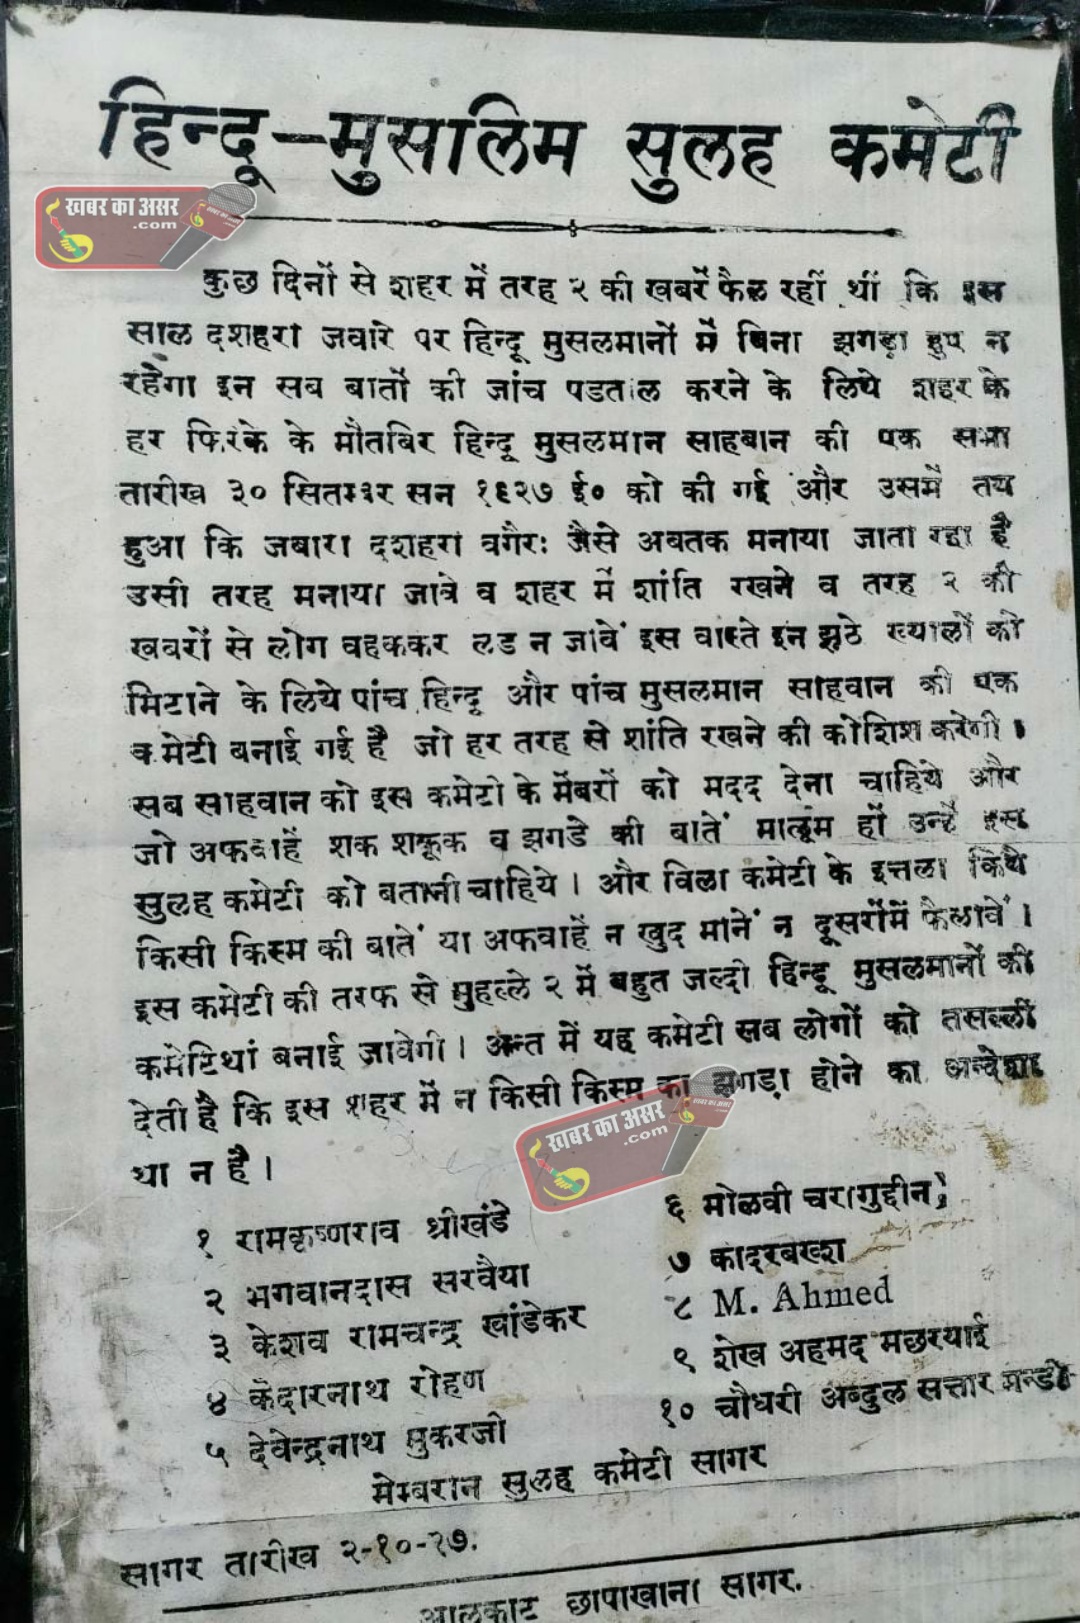 हिन्दू-मुसालिम सुलह कमेटी
खबर का असर
.com
कुछ दिनों से शहर में तरह २ की खबरें फैल रहीं थीं कि इस
साल दशहरा जवारे पर हिन्दू मुसलमानों में बिना झगड़ा हुए न
रहेगा इन सब बातों की जांच पडताल करने के लिये शहर के
हर फिरके के मौतबिर हिन्दू मुसलमान साहबान की एक सभा
तारीख ३० सितम्बर सन १९२७ ई० को की गई और उसमें तय
हुआ कि जबारा दशहरा वगैरः जैसे अबतक मनाया जाता रहा है
उसी तरह मनाया जावे व शहर में शांति रखने व तरह २ की
खबरों से लोग बहककर लड न जावें इस वास्ते इन झूठे ख्यालों को
मिटाने के लिये पांच हिन्दू और पांच मुसलमान साहबान की एक
कमेटी बनाई गई है जो हर तरह से शांति रखने की कोशिश करेगी ।
सब साहबान को इस कमेटी के मेंबरों को मदद देना चाहिये और
जो अफवाहें शक शकूक व झगडे की बातें मालूम हों उन्हें इस
सुलह कमेटी को बतानी चाहिये । और बिला कमेटी के इत्तला किये
किसी किस्म की बातें या अफवाहें न खुद मानें न दूसरोंमें फैलावें ।
इस कमेटी की तरफ से मुहल्ले २ में बहुत जल्दी हिन्दू मुसलमानों की
कमेटियां बनाई जावेगी । अन्त में यह कमेटी सब लोगों को तसल्ली
देती है कि इस शहर में न किसी किस्म का झगड़ा होने का अन्देशा
था न है ।
खबर का असर
.com
१ रामकृष्णराव श्रीखंडे
२ भगवानदास सरवैया
३ केशव रामचन्द्र खांडेकर
४ केदारनाथ रोहण
५ देवेन्द्रनाथ मुकरजी
६ मोलवी चरागुद्दीन
७ कादरबख्श
८ M. Ahmed
९ शेख अहमद मछरयाई
१० चौधरी अब्दुल सत्तार मन्डी
मेम्बरान सुलह कमेटी सागर
सागर तारीख २-१०-२७.
आलकाट छापाखाना सागर.